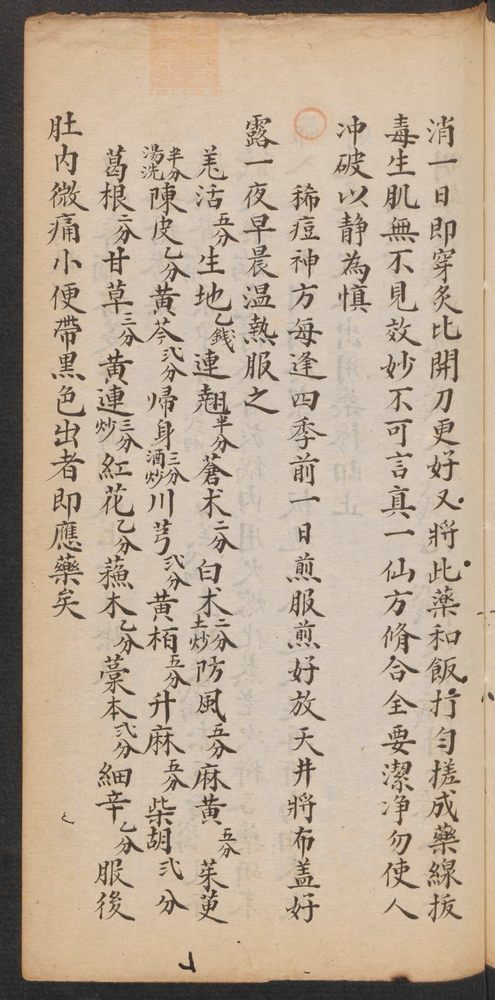 消一日即穿炙比開刀更好又將此藥和飯打勻搓成藥線拔
毒生肌無不見效妙不可言真一仙方脩合全要潔净勿使人
冲破以静為慎
稀痘神方每逢四季前一日煎服煎好放天井將布盖好
露一夜早晨温熱服之
羌活五分生地乙錢連翹半分蒼术二分白术二分土炒防風五分麻黄五分茱萸
半分湯洗陳皮乙分黄芩弍分歸身三分酒炒川芎弍分黄栢五分升麻五分柴胡弍分
葛根二分甘草三分黄連三分炒紅花乙分蘓木乙分藁本弍分細辛乙分服後
肚内微痛小便帶黑色出者即應藥矣